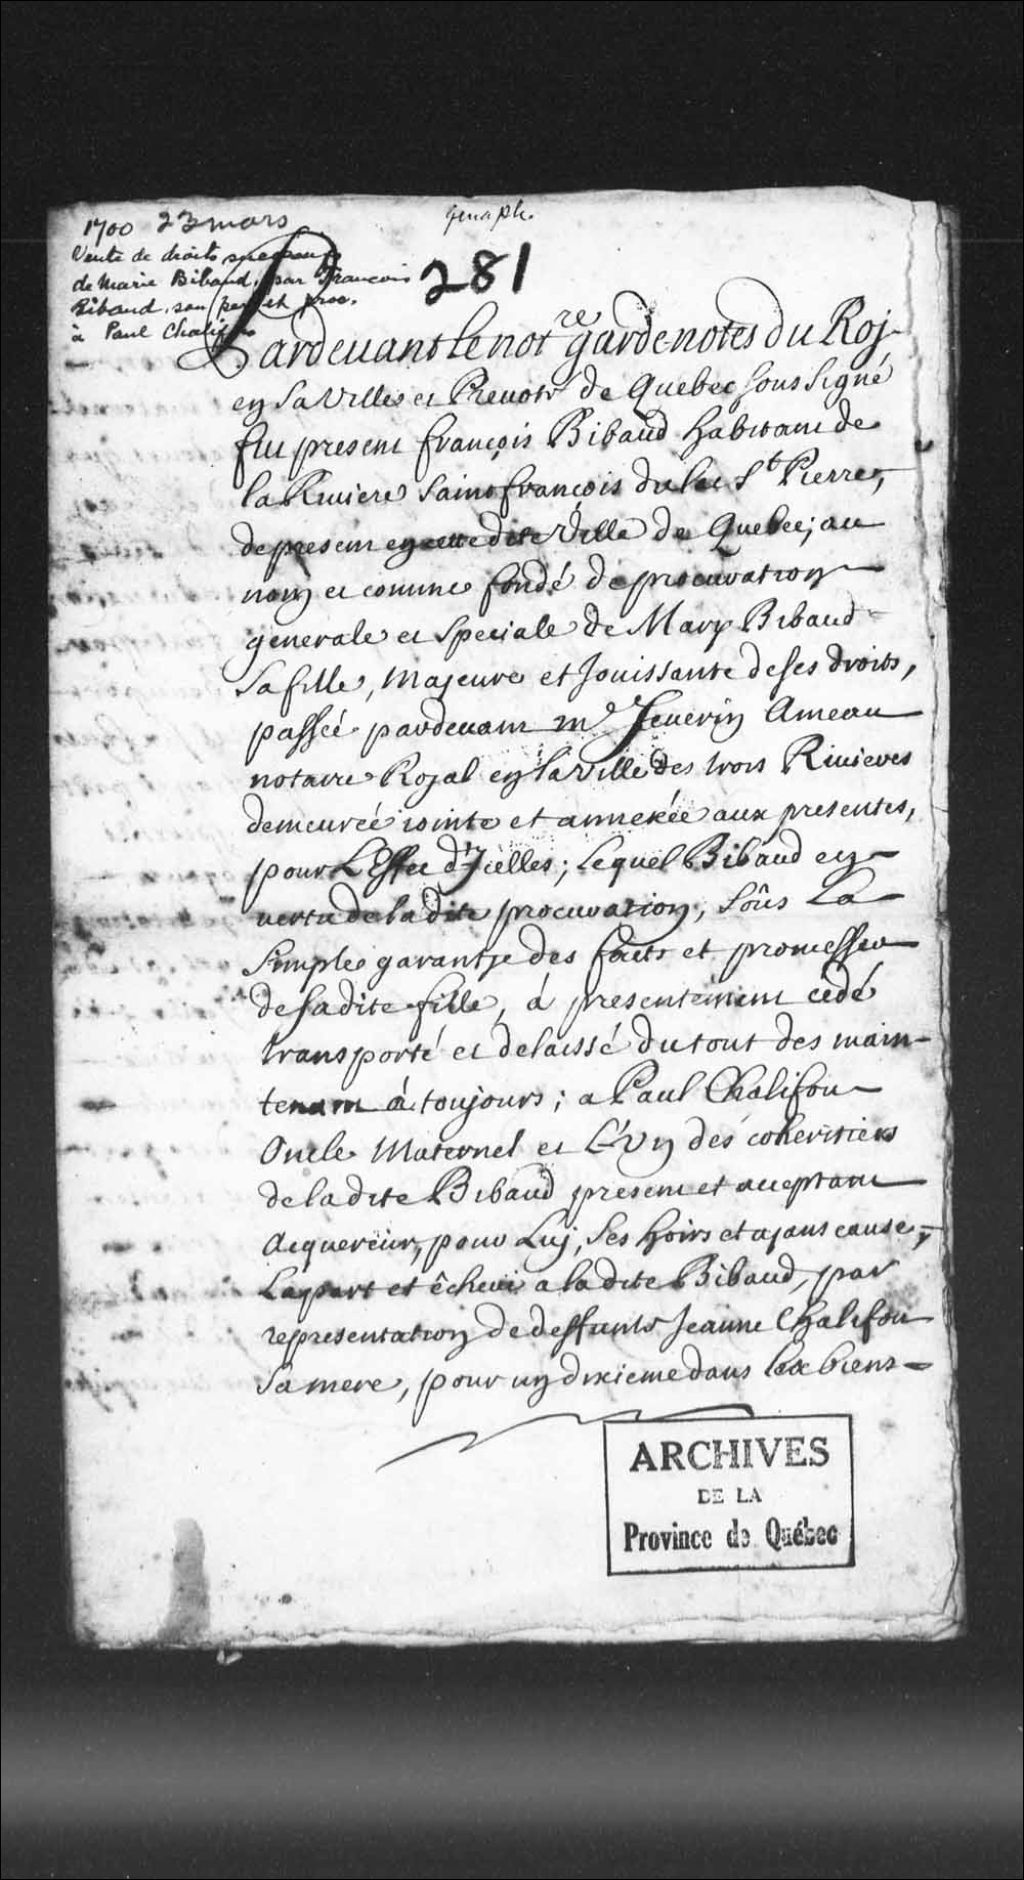 1700 23 mars
Genaple.
Vente de droits successifs
de Marie Bibaud, par Francois
Bibaud, son pere et proc.
à Paul Chalifou
281
Pardevant le notre gardenotes du Roj
en sa Ville et Prevote de Quebec sous signé
fut present françois Bibaud habitant de
la Riviere Saint françois du lac St Pierre,
de present en cette dite Ville de Quebec; au
nom et comme fondé de procuration
generale et speciale de Mary Bibaud
sa fille, Majeure et Jouissante de ses droits,
passée pardevant me Severin Ameau
notaire Rojal en la Ville des trois Rivieres
demeurée jointe et annexée aux presentes,
pour L'Effet d'Jcelles; Lequel Bibaud en
vertu de la dite procuration, sous La
simple garantje des faits et promesses
de sa dite fille, à presentement cedé
transporté et delaissé du tout des main-
tenant à toujours; a Paul Chalifou
Oncle Maternel et L'Vn des coheritiers
de la dite Bibaud present et acceptant
Acquereur, pour Luj, ses hoirs et ajans cause,
La part et êcheue a la dite Bibaud, par
representation de deffunte Jeanne Chalifou
sa mere, pour un dixieme dans les biens
ARCHIVES
DE LA
Province de Québec